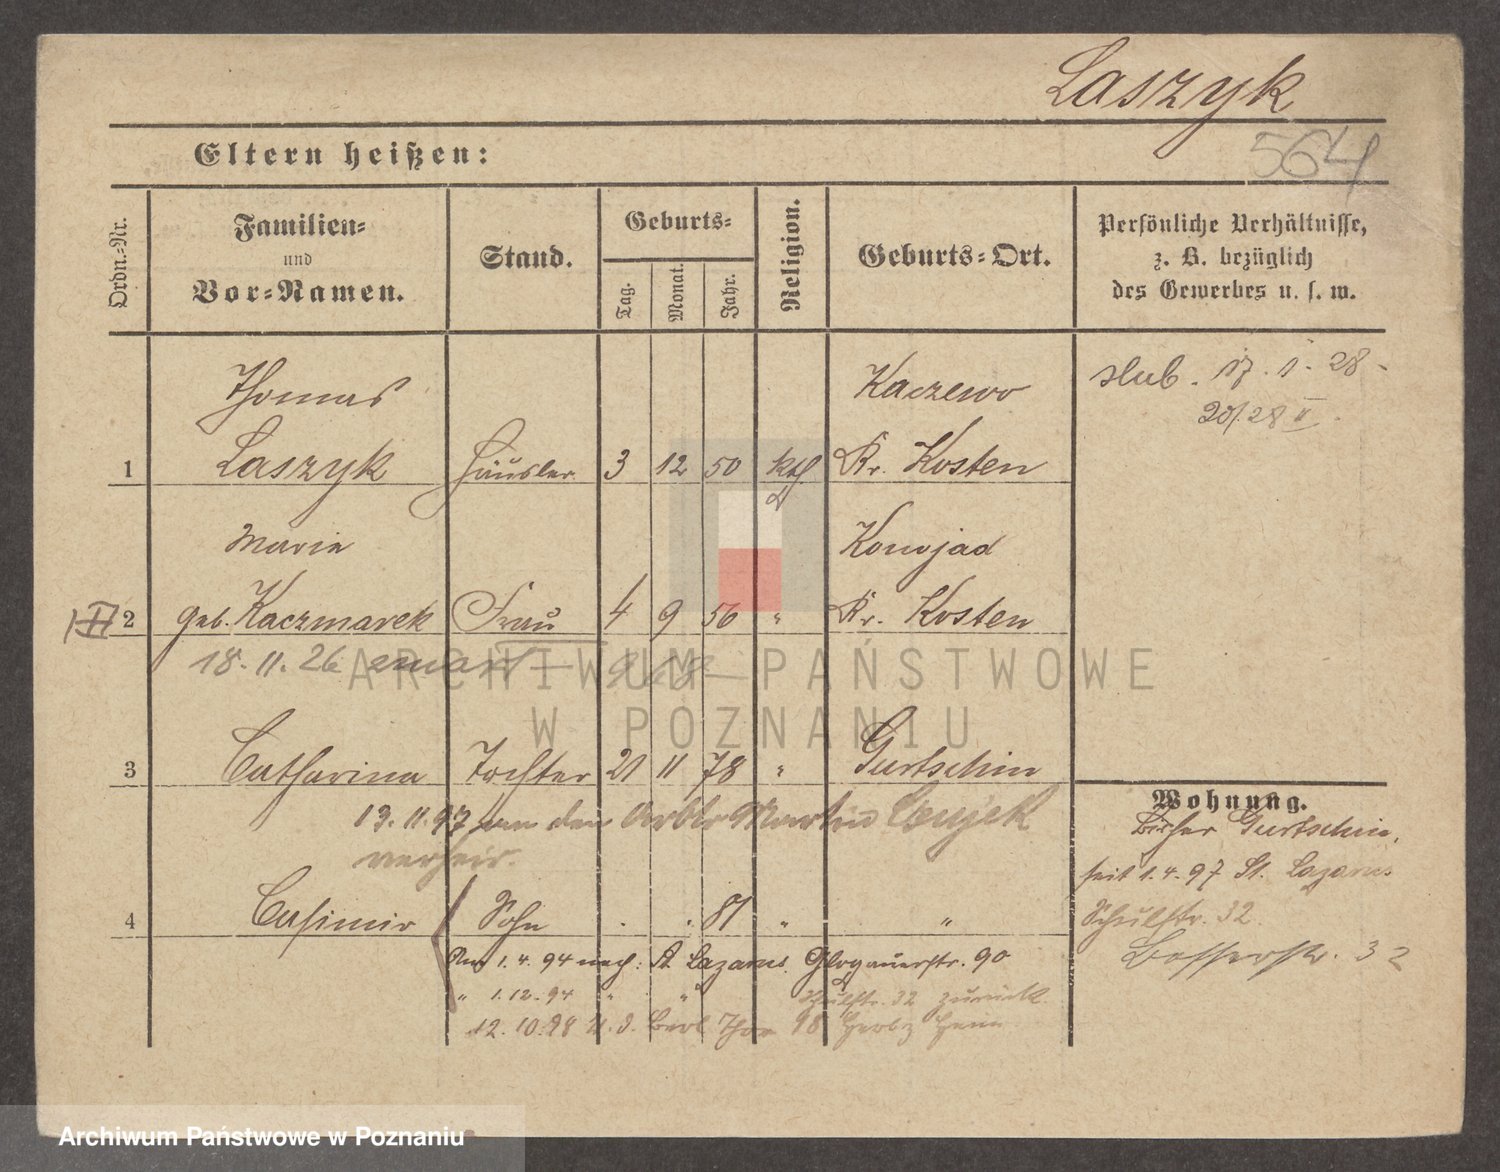 Laszyk
564
Eltern heißen:
Ordn.-Nr.
Familien-
und
Vor-Namen.
Stand.
Geburts-
Tag.
Monat.
Jahr.
Religion.
Geburts-Ort.
Persönliche Verhältnisse,
z. B. bezüglich
des Gewerbes u. s. w.
Thomas Kaczewo
1 Laszyk Häusler 3 12 50 kth Kr. Kosten
slub. 17. 1. 28 -
20/28 II.
Maria Konojad
2 geb. Kaczmarek Frau 4 9 56 " Kr. Kosten
18. 11. 26 zmarł 968
3 Catharina Tochter 21 11 78 " Gurtschin
13. 11. 97 an den Arbtr Martin
verheir.
4 Casimir Sohn . . 81 " "
Am 1. 4. 94 nach: St. Lazarus. Glogauerstr. 90
" 1.12.94 " " Schulstr. 32 zurück
12. 10. 98 Berl. Thor
Wohnung.
Bisher Gurtschin,
seit 1. 4. 97 St. Lazarus
Schulstr. 32
32
ARCHIWUM PAŃSTWOWE
W POZNANIU
Archiwum Państwowe w Poznaniu